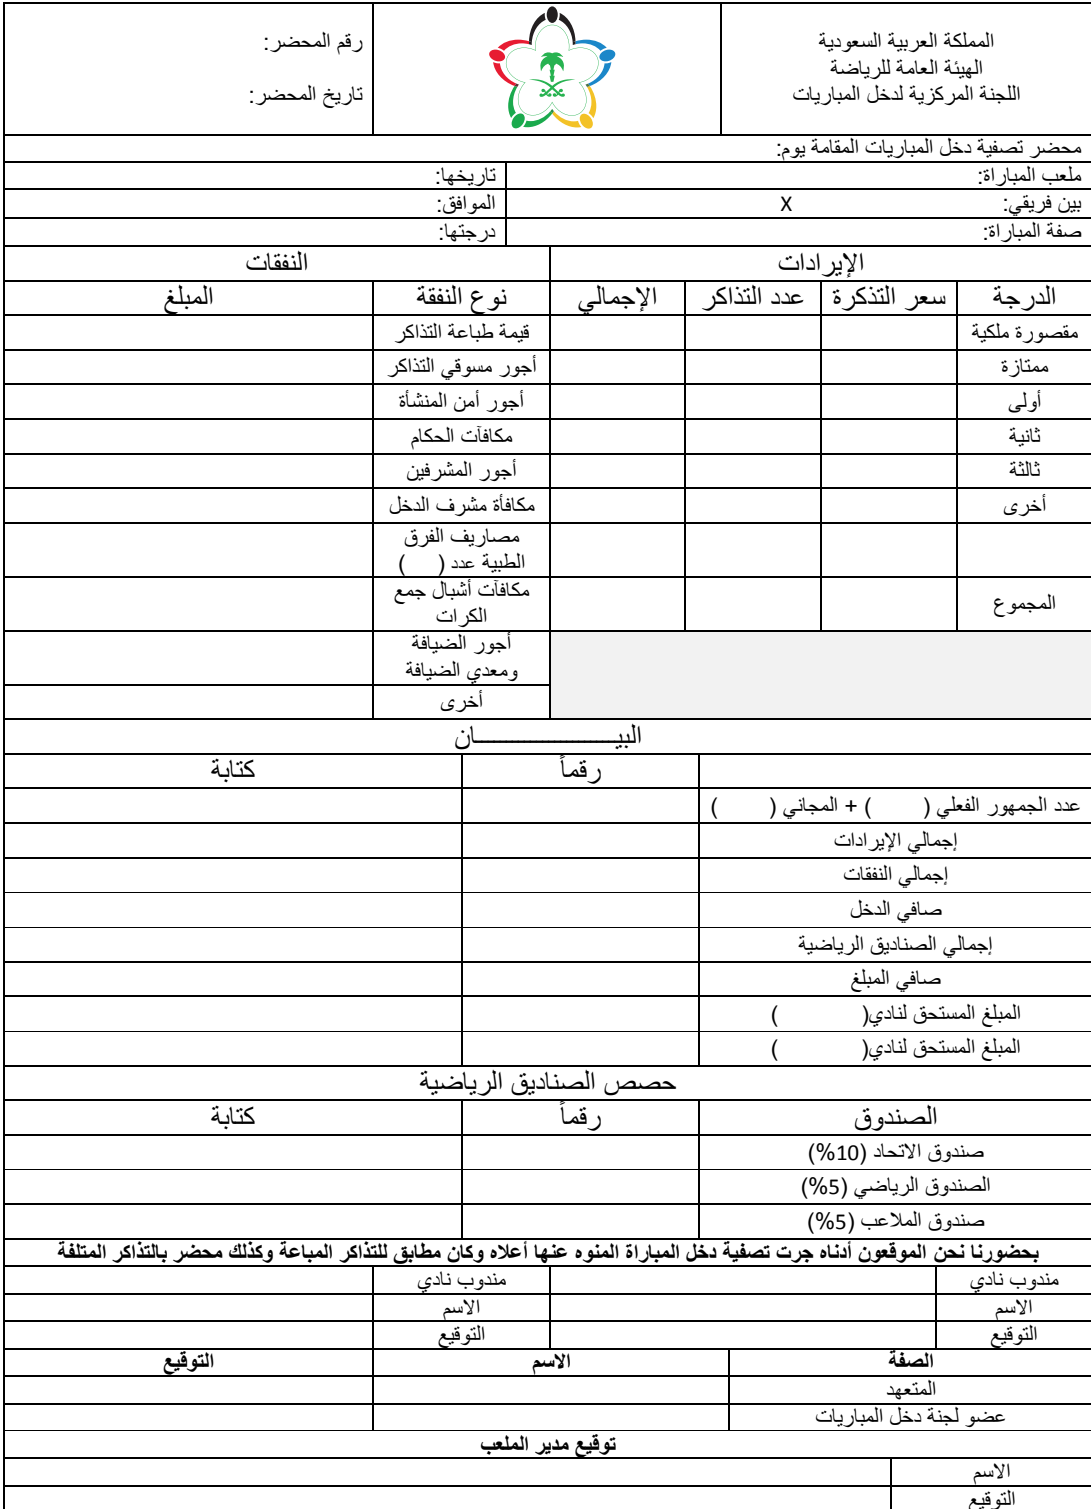 المملكة العربية السعودية
الهيئة العامة للرياضة
اللجنة المركزية لدخل المباريات
رقم المحضر:
تاريخ المحضر:
محضر تصفية دخل المباريات المقامة يوم:
ملعب المباراة: تاريخها:
بين فريقي: X الموافق:
صفة المباراة: درجتها:
الإيرادات النفقات
الدرجة سعر التذكرة عدد التذاكر الإجمالي نوع النفقة المبلغ
مقصورة ملكية قيمة طباعة التذاكر
ممتازة أجور مسوقي التذاكر
أولى أجور أمن المنشأة
ثانية مكافآت الحكام
ثالثة أجور المشرفين
أخرى مكافأة مشرف الدخل
مصاريف الفرق
الطبية عدد ( )
المجموع مكافآت أشبال جمع
الكرات
أجور الضيافة
ومعدي الضيافة
أخرى
البيـــــــــــــــــــــــان
رقماً كتابة
عدد الجمهور الفعلي ( ) + المجاني ( )
إجمالي الإيرادات
إجمالي النفقات
صافي الدخل
إجمالي الصناديق الرياضية
صافي المبلغ
المبلغ المستحق لنادي( )
المبلغ المستحق لنادي( )
حصص الصناديق الرياضية
الصندوق رقماً كتابة
صندوق الاتحاد (10%)
الصندوق الرياضي (5%)
صندوق الملاعب (5%)
بحضورنا نحن الموقعون أدناه جرت تصفية دخل المباراة المنوه عنها أعلاه وكان مطابق للتذاكر المباعة وكذلك محضر بالتذاكر المتلفة
مندوب نادي مندوب نادي
الاسم الاسم
التوقيع التوقيع
الصفة الاسم التوقيع
المتعهد
عضو لجنة دخل المباريات
توقيع مدير الملعب
الاسم
التوقيع